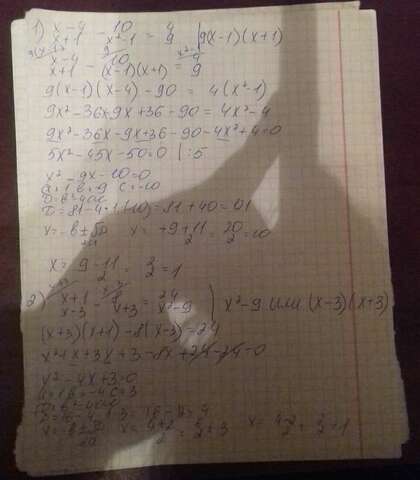 1) x-4/x+1 - 10/x²-1 = 4/9 | 9(x-1)(x+1)
x-4/x+1 - 10/(x-1)(x+1) = 4/9
9(x-1)(x-4)-90 = 4(x²-1)
9x²-36x-9x+36-90=4x²-4
9x²-36x-9x+36-90-4x²+4=0
5x²-45x-50=0 |:5
x²-9x-10=0
D=81-4·1·(-10)=81+40=121
x= +9+11/2 = 20/2 =10
x= 9-11/2 = 2/2 =1
2) x+1/x-3 - 8/x+3 = 24/x²-9 | x²-9 или (x-3)(x+3)
(x+3)(x+1)-8(x-3)=24
x²+x+3x+3-8x+24-24=0
x²-4x+3=0
x= 4+2/2 = 6/2 = 3 x= 4-2/2 = 2/2 = 1